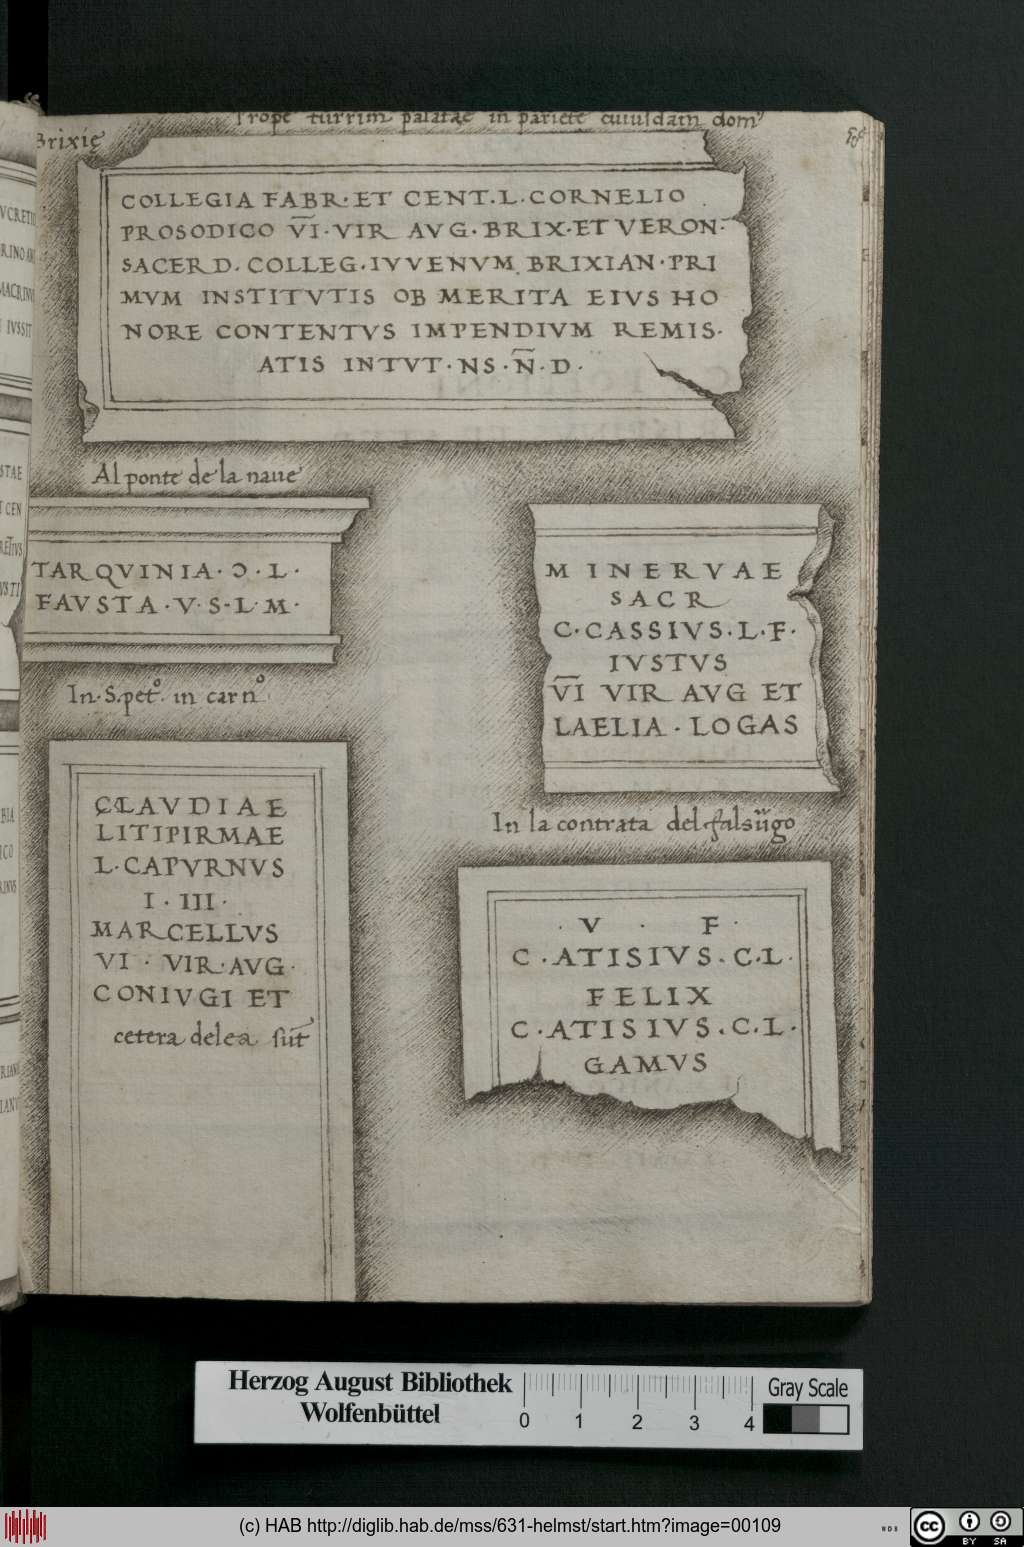 Prope turrim palatae in pariete cuiusdam dom⁹
Brixię
COLLEGIA FABR·ET CENT·L·CORNELIO
PROSODICO V̅I̅·VIR AVG·BRIX·ET VERON·
SACERD·COLLEG·IVVENVM BRIXIAN·PRI
MVM INSTITVTIS OB MERITA EIVS HO
NORE CONTENTVS IMPENDIVM REMIS·
ATIS INTVT·NS·N̅·D·
Al ponte de la naue
TARQVINIA·Ɔ·L·
FAVSTA·V·S·L·M·
MINERVAE
SACR
C·CASSIVS·L·F·
IVSTVS
V̅I̅ VIR AVG ET
LAELIA·LOGAS
In·S·petº· in carnº
CLAVDIAE
LITIPIRMAE
L·CAPVRNVS
I·III·
MARCELLVS
VI·VIR·AVG·
CONIVGI ET
cetera delea sūt
In la contrata del falsügo
·V·F·
C·ATISIVS·C·L·
FELIX
C·ATISIVS·C·L·
GAMVS
VCRETI
MACRINV
IVSSIT
STAE
T CEN
RETIVS
VSTI
BIA
ICO
RINVS
RIAN
IANV
Herzog August Bibliothek
Wolfenbüttel
0 1 2 3 4
Gray Scale
(c) HAB http://diglib.hab.de/mss/631-helmst/start.htm?image=00109
WDB
cc BY SA